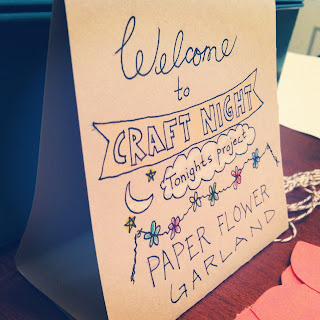 Welcome
to
CRAFT NIGHT
Tonights project
PAPER FLOWER
GARLAND